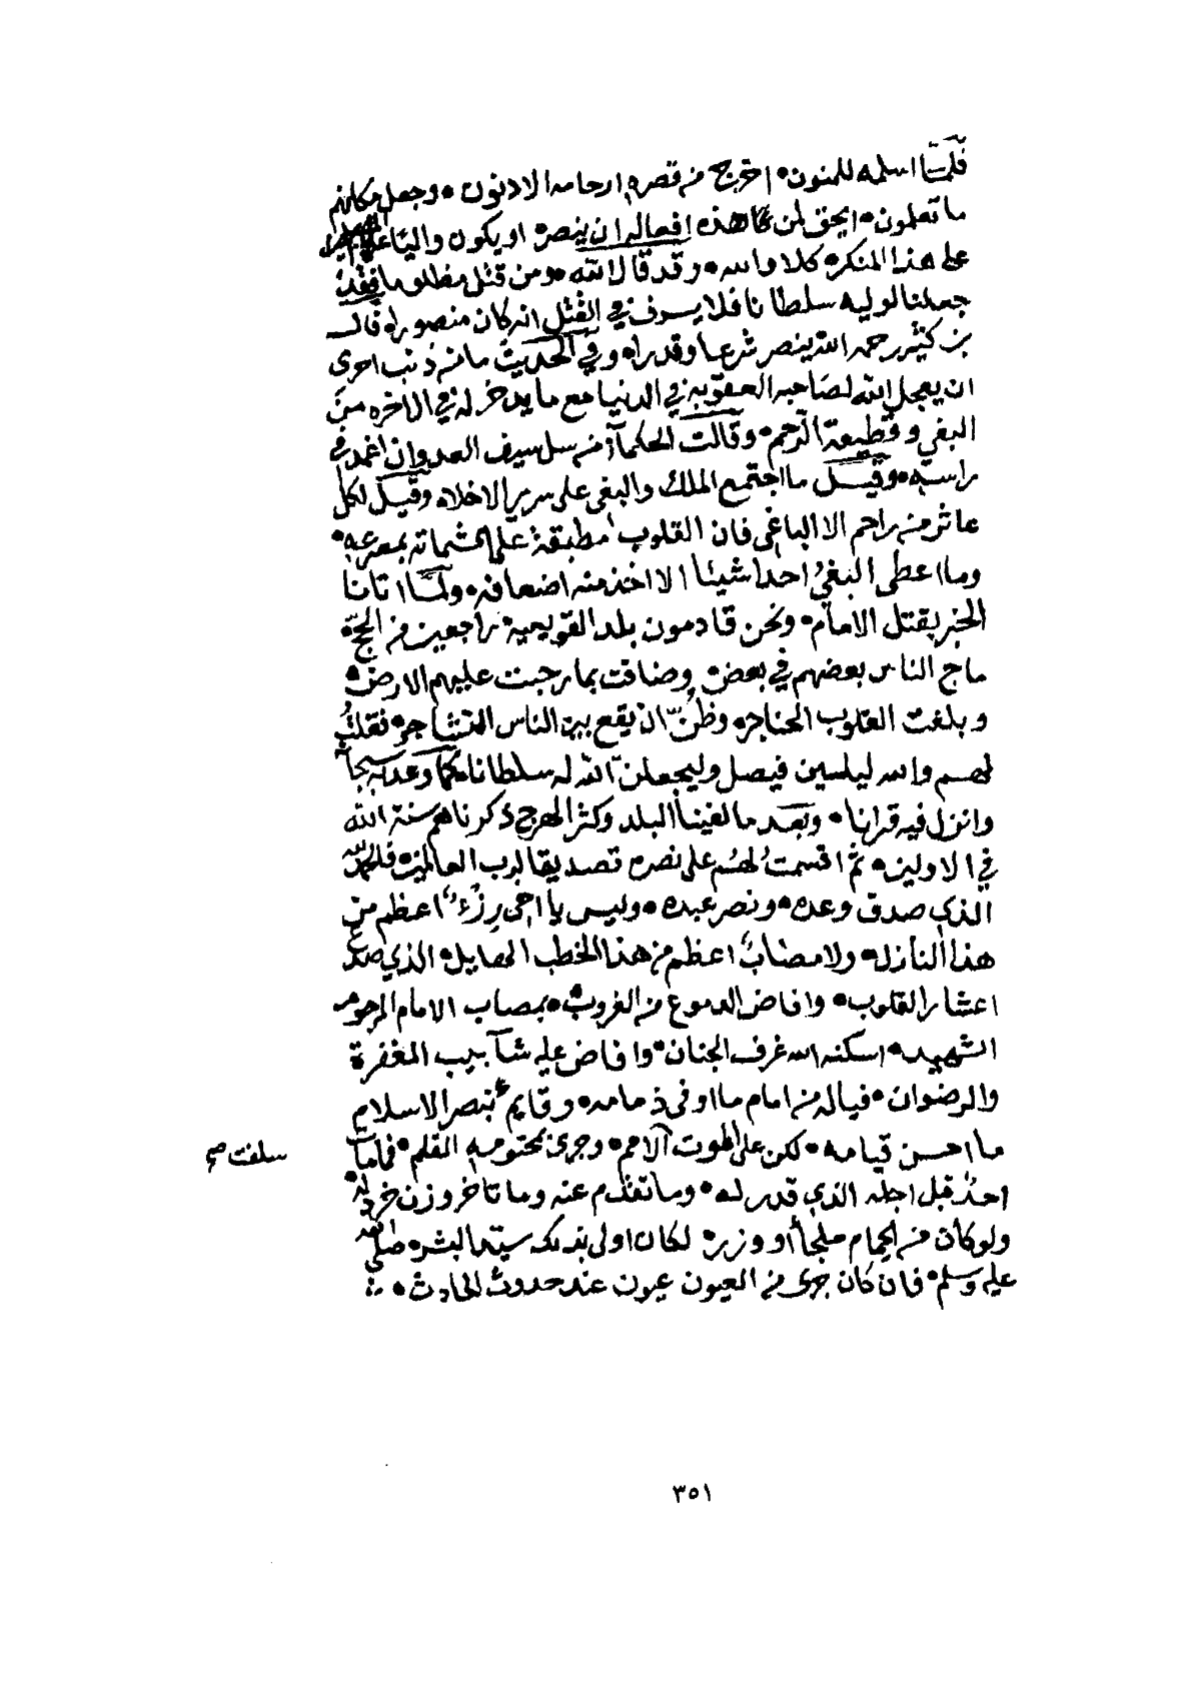 فلمّا اسلمه للمنون • اخرج من قصره ارحامه الادنون • وجعل مكانهم
ما تعلمون • ايحق لمن هذه افعاله ان ينصره او يكون واليا
على هذا المنكره كلا والله • وقد قال الله • ومن قتل مظلوما فقد
جعلنا لوليه سلطانا فلا يسرف في القتل انه كان منصورا • قال
بن كثير رحمه الله ينصر شرعا وقدرا • وفي الحديث ما من ذنب احرى
ان يعجل الله لصاحبه العقوبه في الدنيا مع ما يدخر له في الاخره من
البغي وقطيعة الرحم • وقالت الحكمآء من سل سيف العدوان اغمد في
راسه • وقيل ما اجتمع الملك والبغي على سرير الا خلاه وقيل لكل
عاثر من راحم الا الباغي فان القلوب مطبقة على الشماته بمصرعه •
وما اعطى البغي احدا شيئا الا اخذ منه اضعافه • ولمّا اتانا
الخبر بقتل الامام • ونحن قادمون بلد القويعيه راجعين من الحجّ
ماج الناس بعضهم في بعض • وضاقت بما رحبت عليهم الارض •
وبلغت القلوب الحناجر • وظنّ ان يقع بين الناس التشاجر • فقلت
لهم والله ليلسين فيصل وليجعلنّ الله له سلطانا كما وعد به
وانزل فيه قرانا • وبعد ما لفينا البلد وكثر الهرج ذكرناهم سنة الله
في الاولين • ثم اقسمت لهم على نصره تصديقا لرب العالمين • فلله الحمد
الذي صدق وعده • ونصر عبده • وليس يا اخي رزء اعظم من
هذا النازله • ولا مصاب اعظم من هذا الخطب الهايل • الذي صدع
اعشار القلوب • وافاض الدموع من الغروب • بمصاب الامام المرحوم
الشهيد • اسكنه الله غرف الجنان • وافاض عليه شآبيب المغفرة
والرضوان • فياله من امام ما اوفى ذمامه • وقايم بنصر الاسلام
ما احسن قيامه • لكن على الموت الامم • وجرى بمحتومه القلم • فما مات
سلفت صح
احد قبل اجله الذي قدر له • وما تقدم عنه وما تاخر وزن خردله
ولو كان من الحمام ملجأ او وزره لكان اولى بذلك سيد البشر صلى الله
عليه وسلم • فان كان جرى من العيون عيون عند حدوث الحادث •
٣٥١